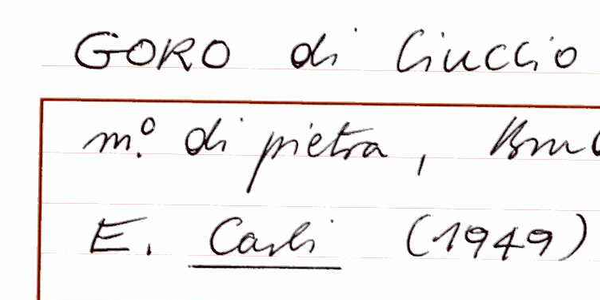 GORO di Ciuccio
m.º di pietra,
E. Carli (1949)